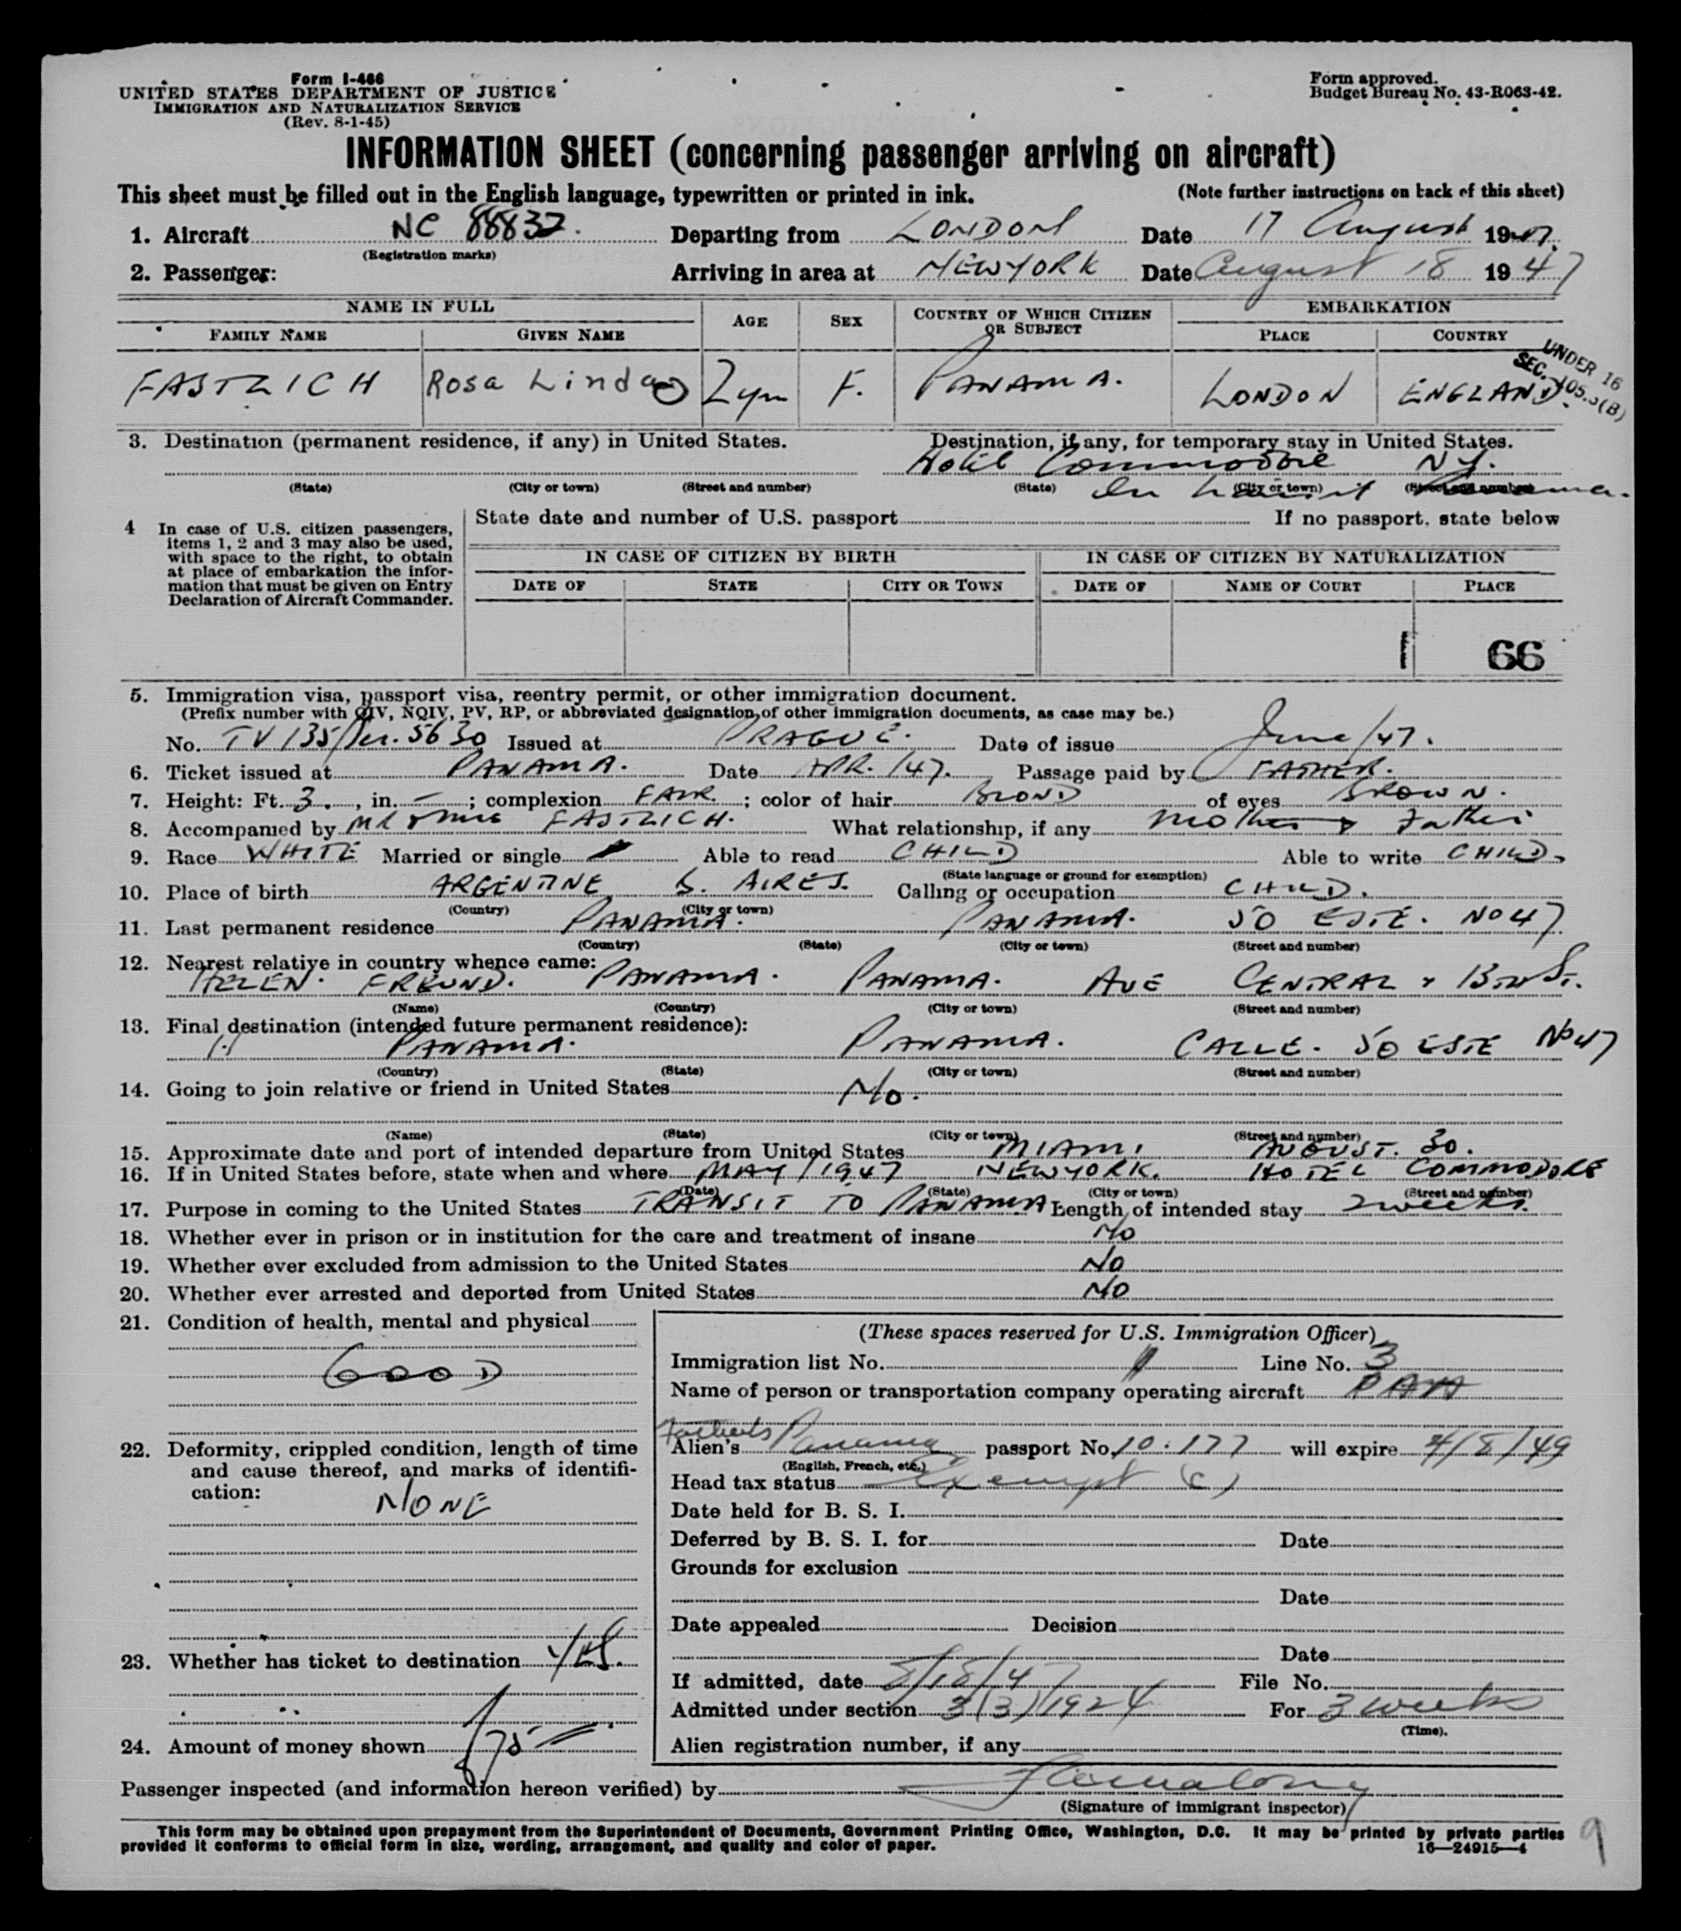 Form I-466
UNITED STATES DEPARTMENT OF JUSTICE
IMMIGRATION AND NATURALIZATION SERVICE
(Rev. 8-1-45)
Form approved.
Budget Bureau No. 43-R063-42.
INFORMATION SHEET (concerning passenger arriving on aircraft)
This sheet must be filled out in the English language, typewritten or printed in ink. (Note further instructions on back of this sheet)
1. Aircraft NC 88832. Departing from LONDON Date 17 August 1947.
(Registration marks)
2. Passenger: Arriving in area at NEW YORK Date August 18 1947
NAME IN FULL AGE SEX COUNTRY OF WHICH CITIZEN OR SUBJECT EMBARKATION
FAMILY NAME GIVEN NAME PLACE COUNTRY
UNDER 16
SEC. 105.3(B)
FASTLICH Rosa Linda 2 yrs F. PANAMA. LONDON ENGLAND.
3. Destination (permanent residence, if any) in United States. Destination, if any, for temporary stay in United States.
Hotel Commodore NY.
(State) (City or town) (Street and number) (State) (City or town) (Street and number)
In transit Panama.
4 In case of U.S. citizen passengers, items 1, 2 and 3 may also be used, with space to the right, to obtain at place of embarkation the information that must be given on Entry Declaration of Aircraft Commander.
State date and number of U.S. passport If no passport, state below
IN CASE OF CITIZEN BY BIRTH IN CASE OF CITIZEN BY NATURALIZATION
DATE OF STATE CITY OR TOWN DATE OF NAME OF COURT PLACE
66
5. Immigration visa, passport visa, reentry permit, or other immigration document.
(Prefix number with QIV, NQIV, PV, RP, or abbreviated designation of other immigration documents, as case may be.)
No. TV 135/ser. 5630 Issued at PRAGUE. Date of issue June/47.
6. Ticket issued at PANAMA. Date APR. /47. Passage paid by FATHER.
7. Height: Ft. 3., in. —; complexion FAIR.; color of hair BLOND of eyes BROWN.
8. Accompanied by MR & MRS FASTLICH. What relationship, if any Mother & Father
9. Race WHITE Married or single Able to read CHILD Able to write CHILD.
(State language or ground for exemption)
10. Place of birth ARGENTINE B. AIRES. Calling or occupation CHILD.
(Country) (City or town)
11. Last permanent residence PANAMA. PANAMA. 50 ESTE. No 47
(Country) (State) (City or town) (Street and number)
12. Nearest relative in country whence came:
HELEN. FREUND. PANAMA. PANAMA. AVE CENTRAL & 13TH ST.
(Name) (Country) (City or town) (Street and number)
13. Final destination (intended future permanent residence):
PANAMA. PANAMA. CALLE. 50 ESTE No 47
(Country) (State) (City or town) (Street and number)
14. Going to join relative or friend in United States No.
(Name) (State) (City or town) (Street and number)
15. Approximate date and port of intended departure from United States MIAMI AUGUST. 30.
16. If in United States before, state when and where MAY/1947 NEW YORK. HOTEL COMMODORE
(Date) (State) (City or town) (Street and number)
17. Purpose in coming to the United States TRANSIT TO PANAMA Length of intended stay 2 weeks.
18. Whether ever in prison or in institution for the care and treatment of insane No
19. Whether ever excluded from admission to the United States No
20. Whether ever arrested and deported from United States No
21. Condition of health, mental and physical
GOOD
22. Deformity, crippled condition, length of time and cause thereof, and marks of identification:
NONE
23. Whether has ticket to destination YES.
24. Amount of money shown $75—
(These spaces reserved for U.S. Immigration Officer)
Immigration list No. 1 Line No. 3
Name of person or transportation company operating aircraft PAA
Father's
Alien's Panama passport No. 10.177 will expire 4/8/49
(English, French, etc.)
Head tax status Exempt (c)
Date held for B. S. I.
Deferred by B. S. I. for Date
Grounds for exclusion
Date
Date appealed Decision
Date
If admitted, date 8/18/47 File No.
Admitted under section 3(3)/1924 For 3 weeks
(Time).
Alien registration number, if any
Passenger inspected (and information hereon verified) by
(Signature of immigrant inspector)
This form may be obtained upon prepayment from the Superintendent of Documents, Government Printing Office, Washington, D.C. It may be printed by private parties
provided it conforms to official form in size, wording, arrangement, and quality and color of paper. 16—24915—4
9